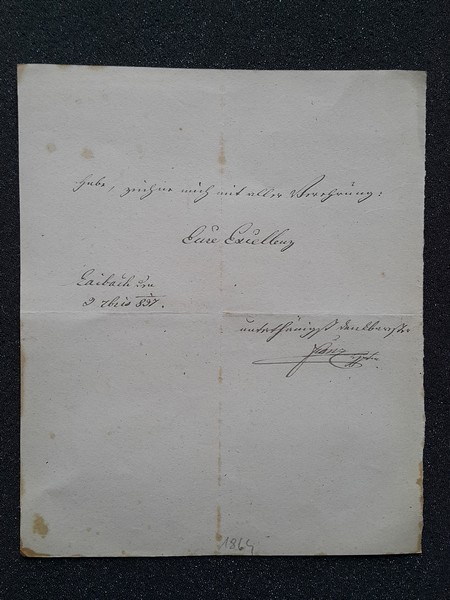 habe, zeichne mich mit aller Verehrung:
Eure Excellenz
Laibach den
9 7bris 837.
unterthänigst dankbarster
Franz
1864